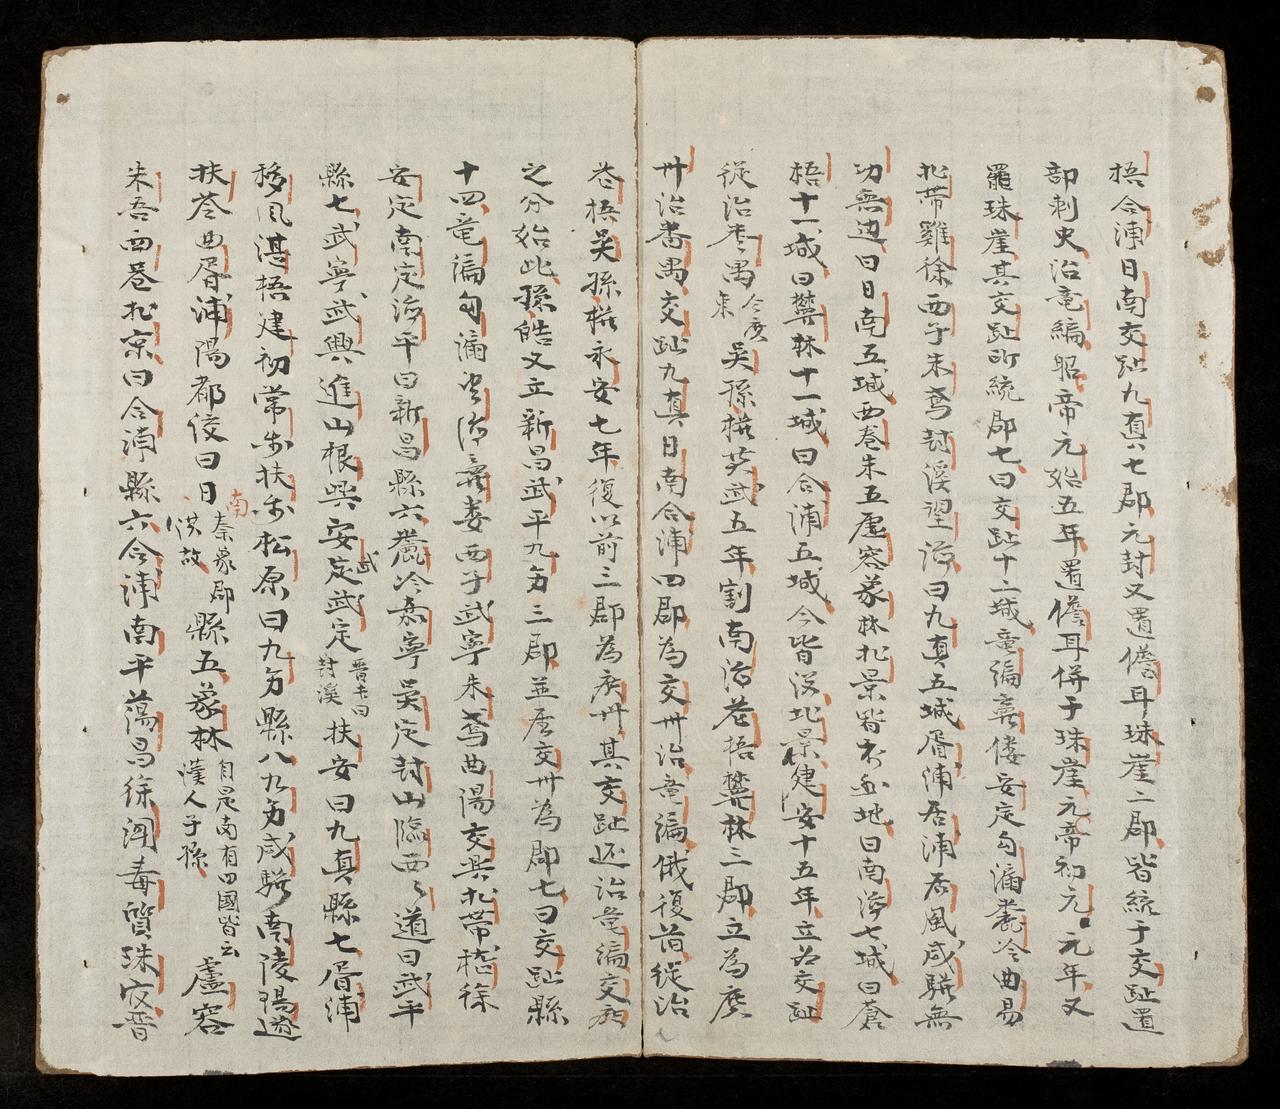 梧合浦日南交趾九真六七郡元封又置儋耳珠崖二郡皆統于交趾置
部刺史治竜編昭帝元始五年置儋耳併于珠崖元帝初元元年又
罷珠崖其交趾所統郡七曰交趾十二城竜編羸𨻻安定勾漏麊冷曲昜
北帶雞徐西于朱鳶封溪望海曰九真五城胥浦居浦居風咸驩無
功無边曰日南五城西卷朱五盧容象林北景皆邊地日南海七城曰蒼
梧十一城曰欝林十一城曰合浦五城今皆没北景建安十五年立為交趾
從治畨禺今広東吳孫權黄武五年割南海蒼梧欝林三郡立為廣
州治畨禺交趾九真日南合浦四郡為交州治竜編俄復前從治
蒼梧吳孫權永安七年復以前三郡為廣州其交趾还治竜編交廣
之分始此孫皓又立新昌武平九𭛁三郡並居交州為郡七曰交趾縣
十四竜編勾漏望海羸婁西于武寧朱鳶曲陽交興北帶稽徐
安定南定海平曰新昌縣六麊冷嘉寧吳定封山臨西西道曰武平
縣七武寧武興進山根興安武定武定晉志曰封溪扶安曰九真縣七胥浦
移風湛梧建初常乐扶乐松原曰九𭛁縣八九𭛁咸驩南陵陽遂
扶苓曲胥浦陽都佼曰日南秦象郡洪故縣五象林自是南有四國皆云漢人子孫盧容
朱吾西卷北景曰合浦縣六合浦南平蕩昌徐聞毒質珠官晉